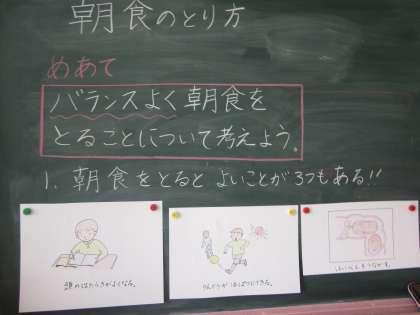 朝食のとり方
めあて
バランスよく朝食を
とることについて考えよう。
1. 朝食をとるとよいことが3つもある!!
頭のはたらきがよくなる。